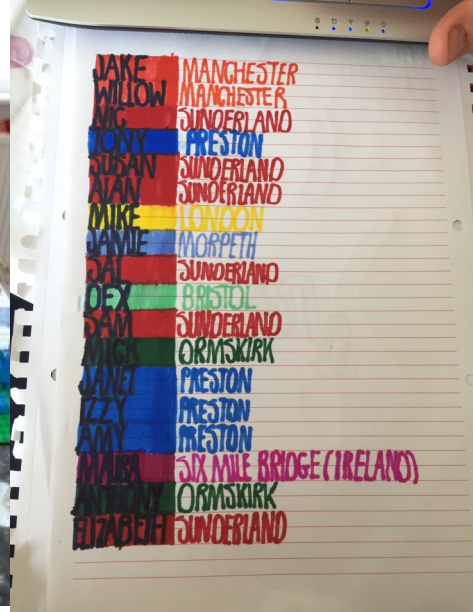 JAKE MANCHESTER
WILLOW MANCHESTER
NIC SUNDERLAND
TONY PRESTON
SUSAN SUNDERLAND
ALAN SUNDERLAND
MIKE LONDON
JAMIE MORPETH
SAL SUNDERLAND
DEX BRISTOL
SAM SUNDERLAND
MICK ORMSKIRK
JANET PRESTON
IZZY PRESTON
AMY PRESTON
MAURA SIX MILE BRIDGE (IRELAND)
ANTHONY ORMSKIRK
ELIZABETH SUNDERLAND